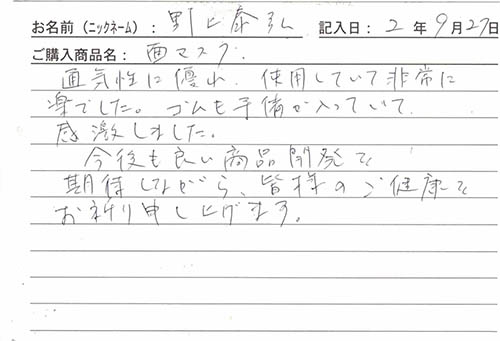 お名前（ニックネーム）：野上泰弘 記入日：2年9月27日
ご購入商品名：面マスク.
通気性に優れ、使用していて非常に
楽でした。ゴムも予備が入っていて、
感激しました。
今後も良い商品開発を
期待しながら、皆様のご健康を
お祈り申し上げます。